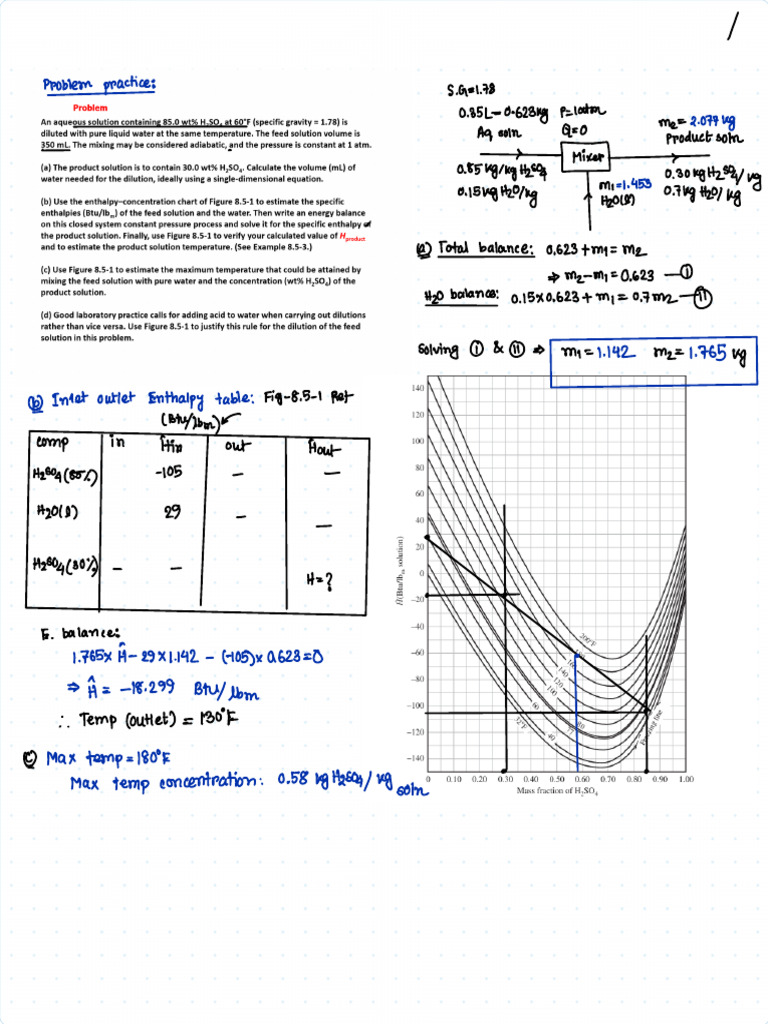 Problem practice:
Problem
An aqueous solution containing 85.0 wt% H₂SO₄ at 60°F (specific gravity = 1.78) is
diluted with pure liquid water at the same temperature. The feed solution volume is
350 mL. The mixing may be considered adiabatic, and the pressure is constant at 1 atm.
(a) The product solution is to contain 30.0 wt% H₂SO₄. Calculate the volume (mL) of
water needed for the dilution, ideally using a single-dimensional equation.
(b) Use the enthalpy–concentration chart of Figure 8.5-1 to estimate the specific
enthalpies (Btu/lbₘ) of the feed solution and the water. Then write an energy balance
on this closed system constant pressure process and solve it for the specific enthalpy of
the product solution. Finally, use Figure 8.5-1 to verify your calculated value of H product
and to estimate the product solution temperature. (See Example 8.5-3.)
(c) Use Figure 8.5-1 to estimate the maximum temperature that could be attained by
mixing the feed solution with pure water and the concentration (wt% H₂SO₄) of the
product solution.
(d) Good laboratory practice calls for adding acid to water when carrying out dilutions
rather than vice versa. Use Figure 8.5-1 to justify this rule for the dilution of the feed
solution in this problem.
S.G=1.78
0.35L – 0.623kg P=1atm
Aq soln Q=0
Mixer
m₂= 2.077 kg
Product soln
0.85 kg/kg H₂SO₄
0.15 kg H₂O/kg
m₁=1.453
H₂O(l)
0.30 kg H₂SO₄/kg
0.7 kg H₂O/kg
(a) Total balance: 0.623+m₁=m₂
⇒ m₂-m₁=0.623 —(I)
H₂O balance: 0.15x0.623+m₁=0.7m₂ —(II)
Solving (I) & (II) ⇒ m₁=1.142 m₂=1.765 kg
(b) Inlet outlet Enthalpy table: Fig-8.5-1 Ref
(Btu/lbm)
comp in Ĥin out Ĥout
H₂SO₄(85%) -105 – –
H₂O(l) 29 – –
H₂SO₄(30%) – – H=?
E. balance:
1.765x Ĥ – 29x1.142 – (-105)x 0.623=0
⇒ Ĥ = -18.299 Btu/lbm
∴ Temp (outlet) = 130°F
(c) Max temp=180°F
Max temp concentration: 0.58 kg H₂SO₄/kg soln
140
120
100
80
60
40
20
0
−20
−40
−60
−80
−100
−120
−140
Ĥ(Btu/lbₘ solution)
200°F
140
120
100
80
77
60
40
32°F
0 0.10 0.20 0.30 0.40 0.50 0.60 0.70 0.80 0.90 1.00
Mass fraction of H₂SO₄